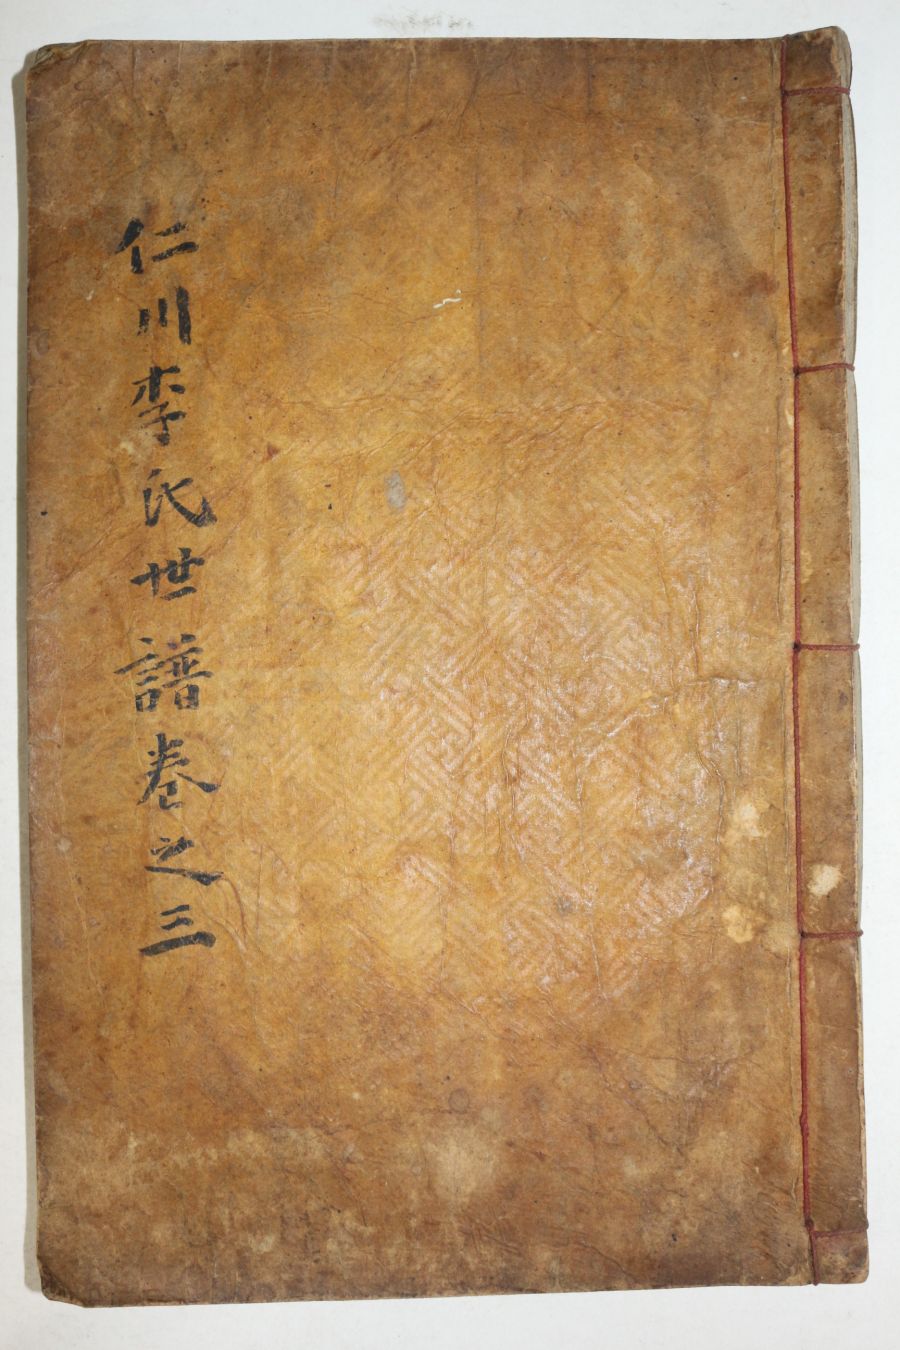 仁川李氏世譜卷之三